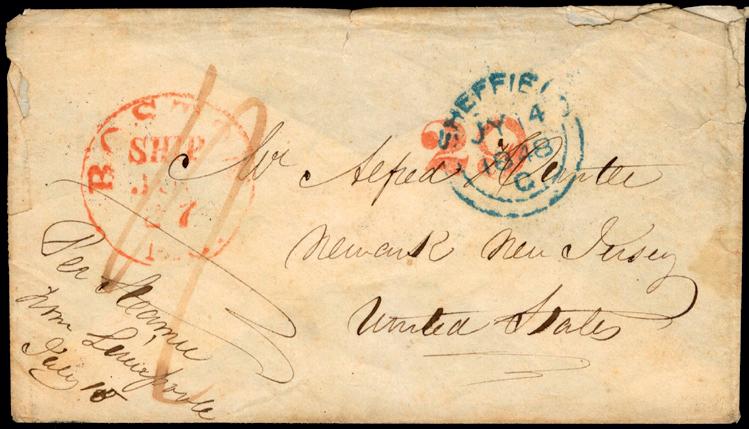 BOSTON
SHIP
27
MS
SHEFFIELD
JY 14
1848
C
29
Mr Alfred Hunter
Newark New Jersey
United States
Per Steamer
from Liverpoole
July 15